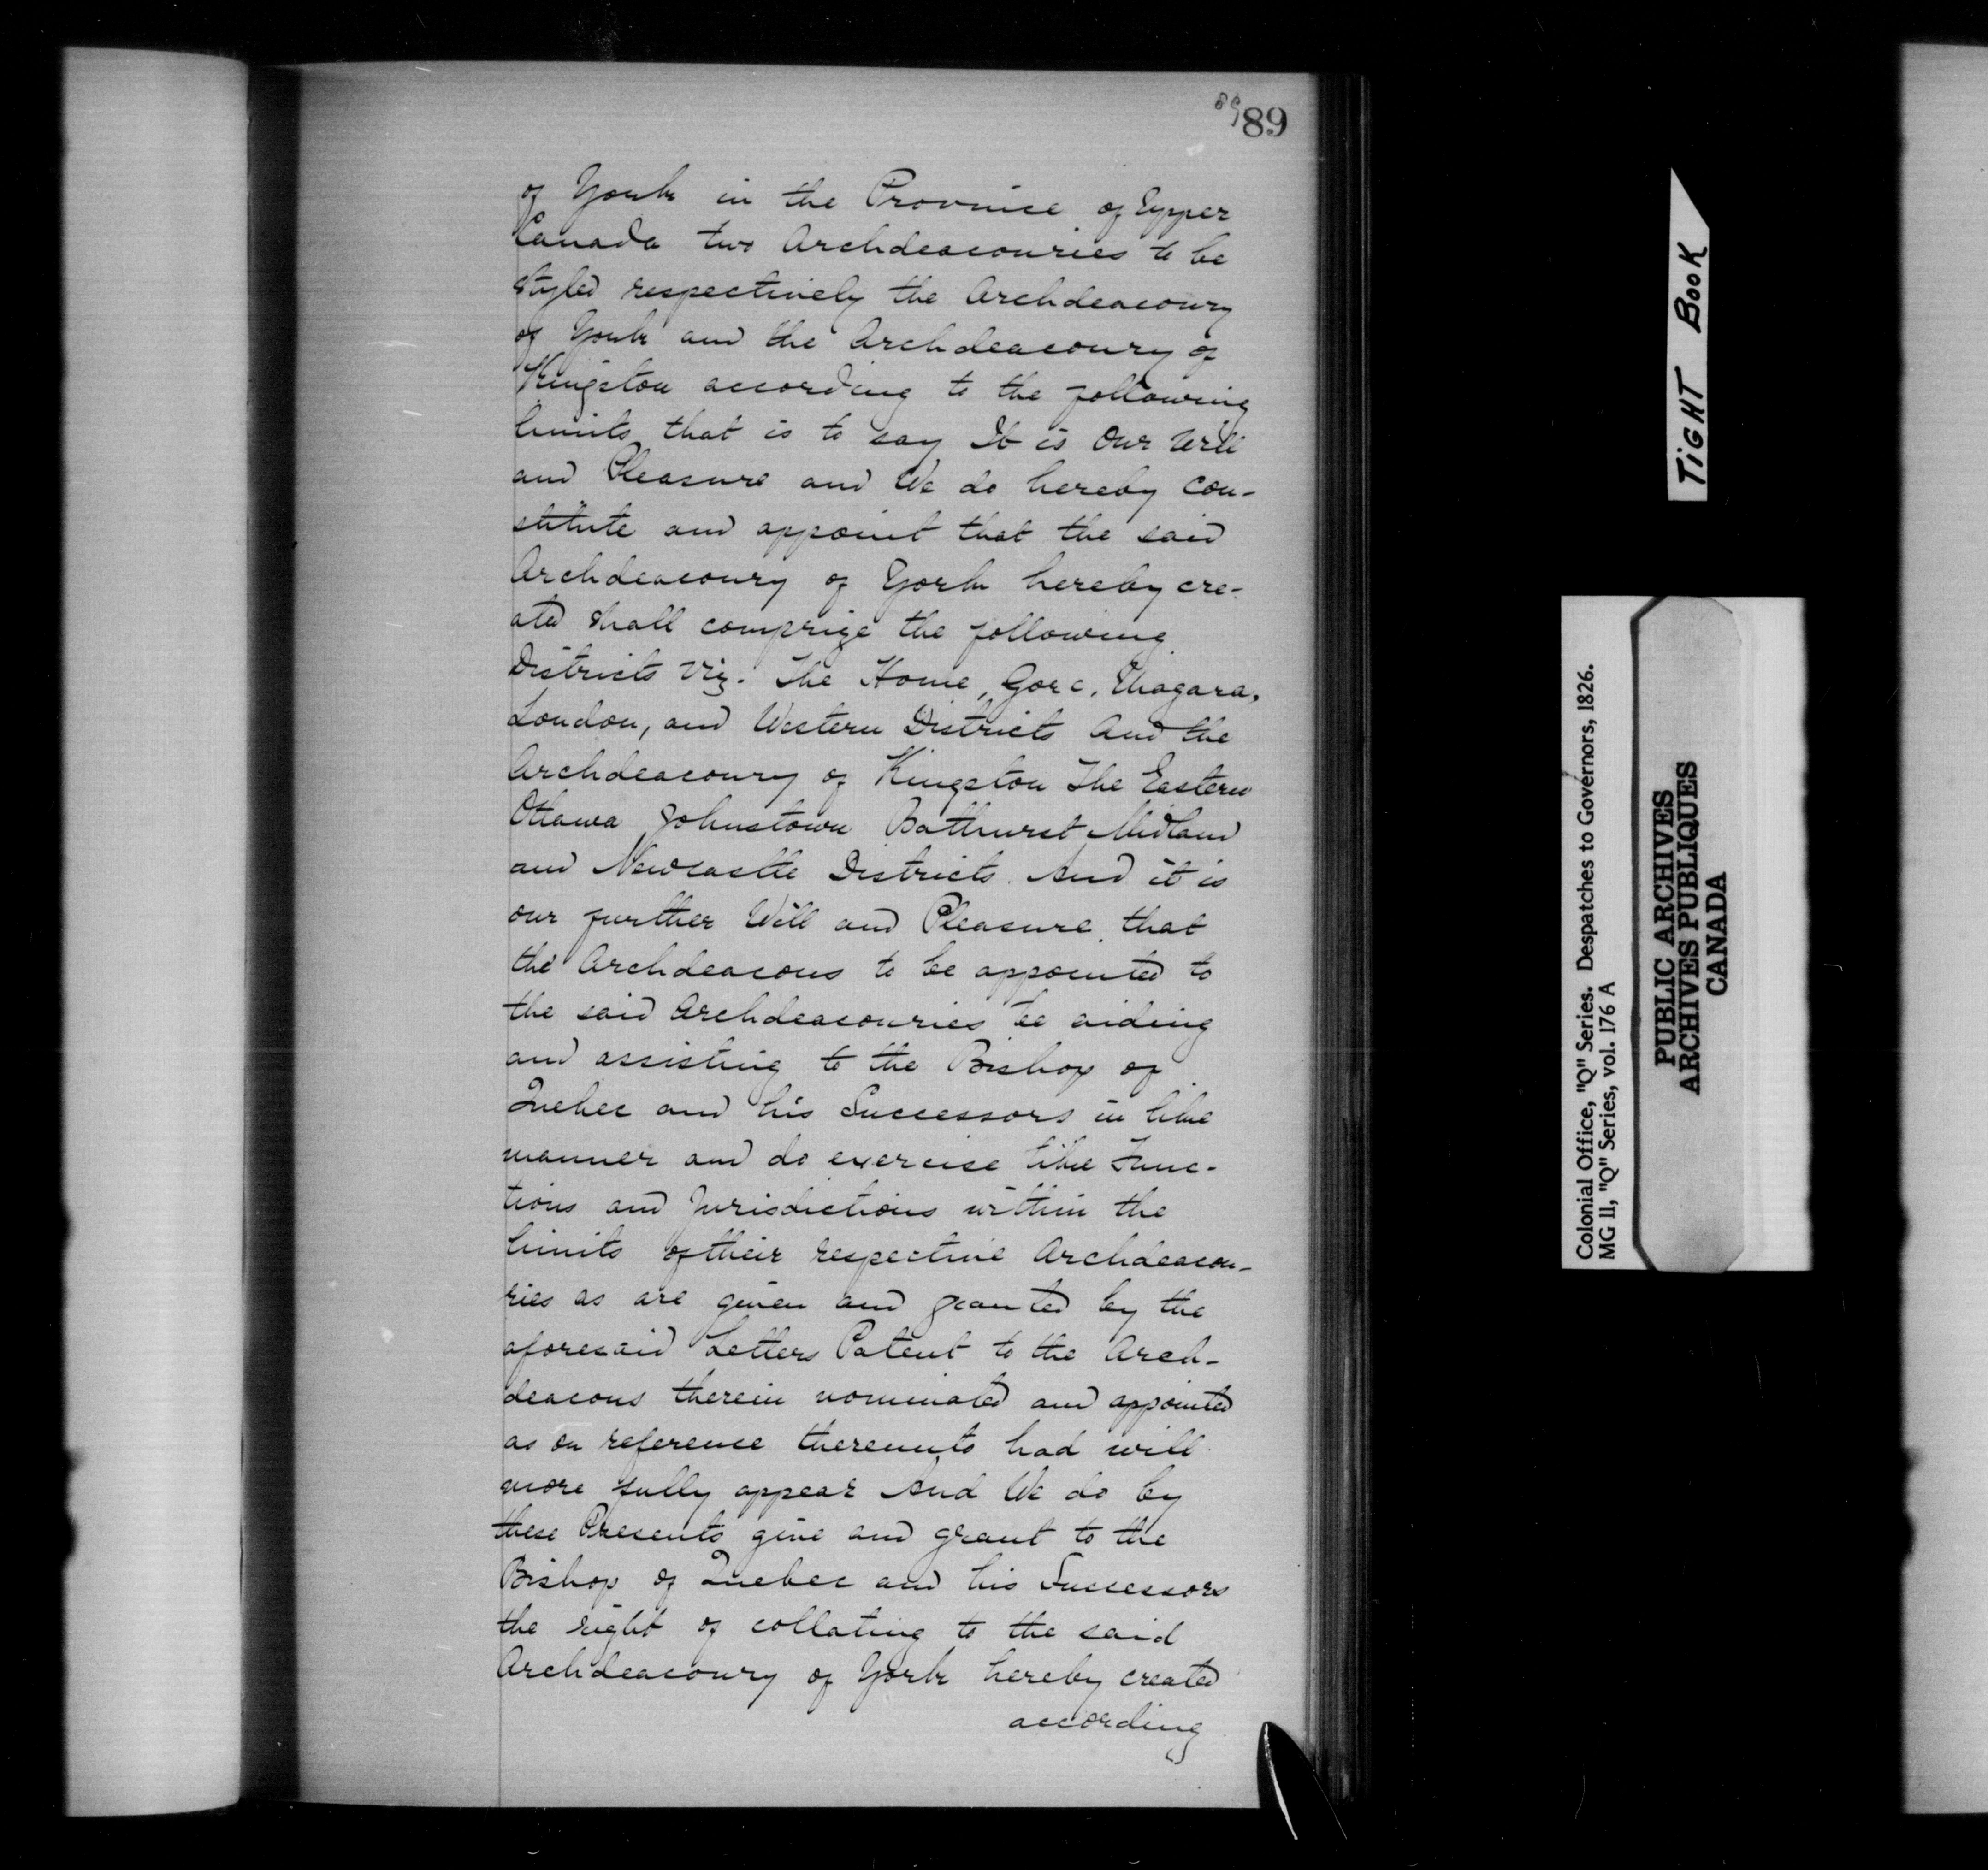 89
89
of York in the Province of Upper
Canada two Archdeaconries to be
styled respectively the Archdeaconry
of York and the Archdeaconry of
Kingston according to the following
limits, that is to say It is Our Will
and Pleasure and We do hereby con-
stitute and appoint that the said
Archdeaconry of York hereby cre-
ated shall comprize the following
Districts viz. The Home, Gore, Niagara,
London, and Western Districts And the
Archdeaconry of Kingston The Eastern
Ottawa Johnstown Bathurst Midland
and Newcastle Districts. And it is
our further Will and Pleasure that
the Archdeacons to be appointed to
the said Archdeaconries be aiding
and assisting to the Bishop of
Quebec and his Successors in like
manner and do exercise like Func-
tions and Jurisdictions within the
limits of their respective Archdeacon-
ries as are given and granted by the
aforesaid Letters Patent to the Arch-
deacons therein nominated and appointed
as on reference thereunto had will
more fully appear And We do by
these Presents give and grant to the
Bishop of Quebec and his Successors
the right of collating to the said
Archdeaconry of York hereby created
according
TIGHT BOOK
Colonial Office, "Q" Series. Despatches to Governors, 1826.
MG 11, "Q" Series, vol. 176 A
PUBLIC ARCHIVES
ARCHIVES PUBLIQUES
CANADA